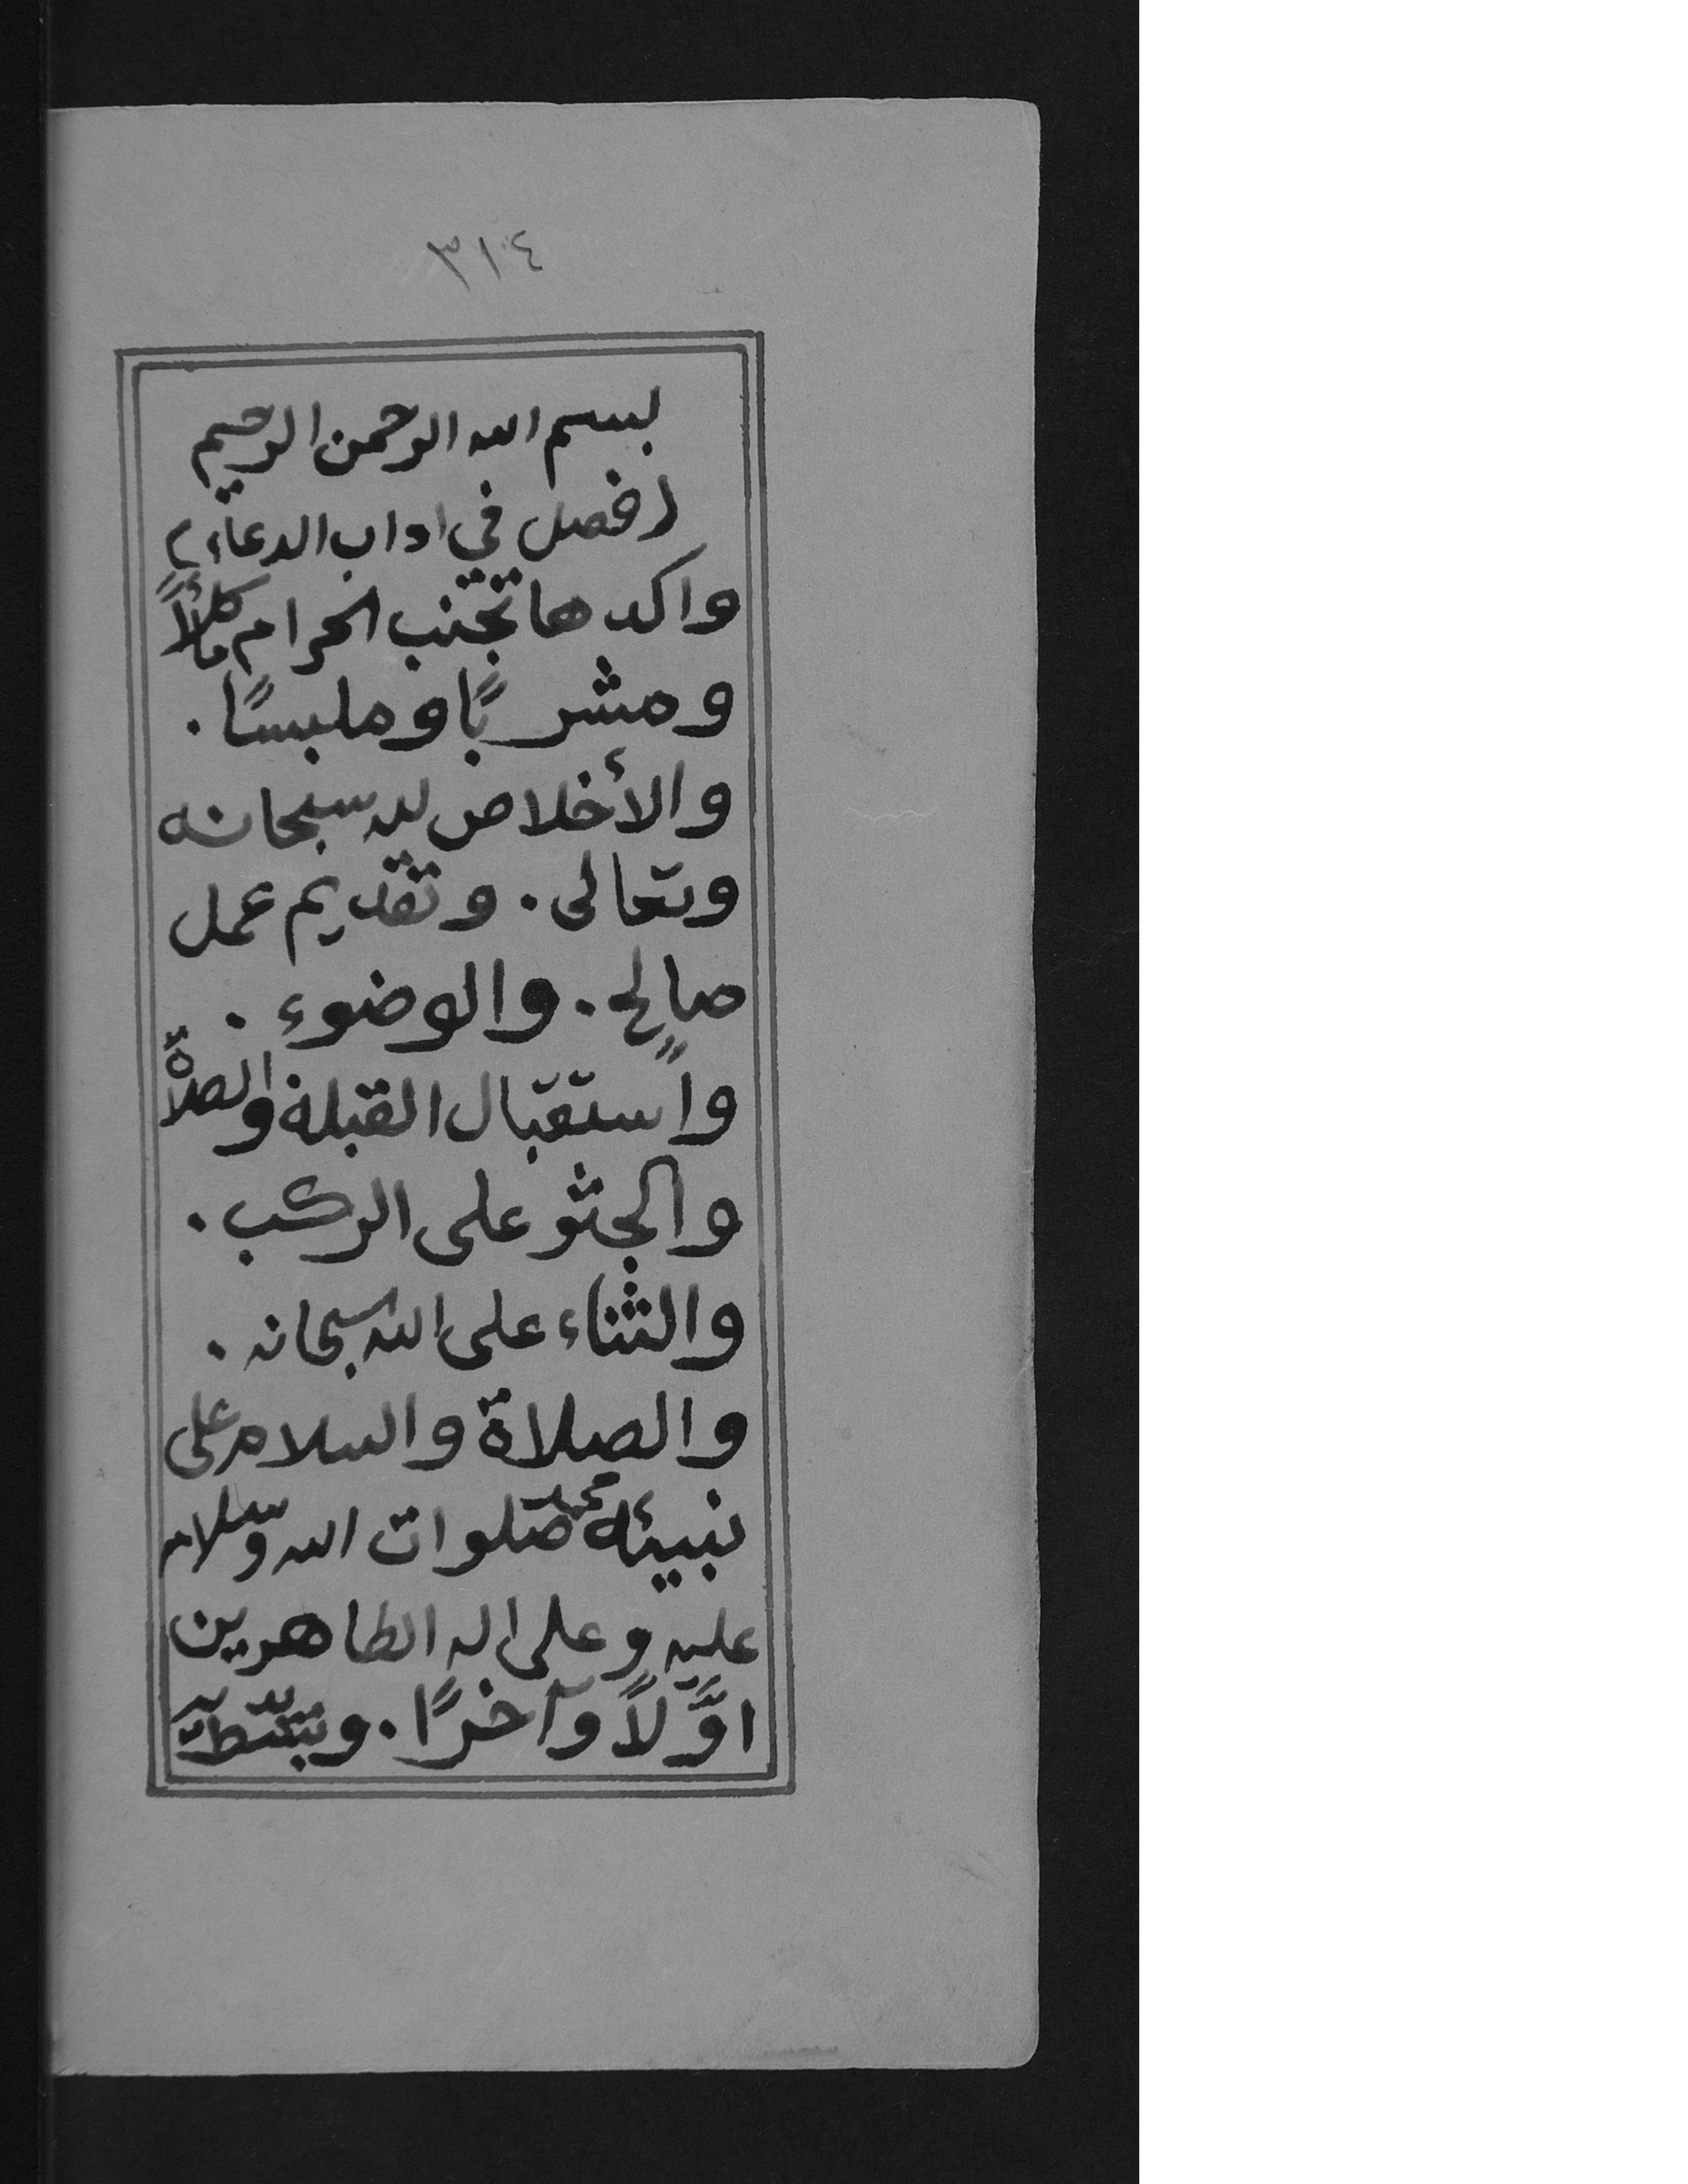 ٣١٤
بسم الله الرحمن الرحيم
(فصل في اداب الدعاء)
واكدها تجنب الحرام مأكلاً
ومشربًا وملبسًا ٠
والأخلاص لله سبحانه
وتعالى ٠ وتقديم عمل
صالحٍ ٠ والوضوء ٠
واستقبال القبلة والصلاة
والجثو على الركب ٠
والثناء على الله سبحانه ٠
والصلاة والسلام على
نبيئه محمد صلوات الله وسلامه
عليه وعلى اله الطاهرين
اوَّلاً وآخرًا ٠